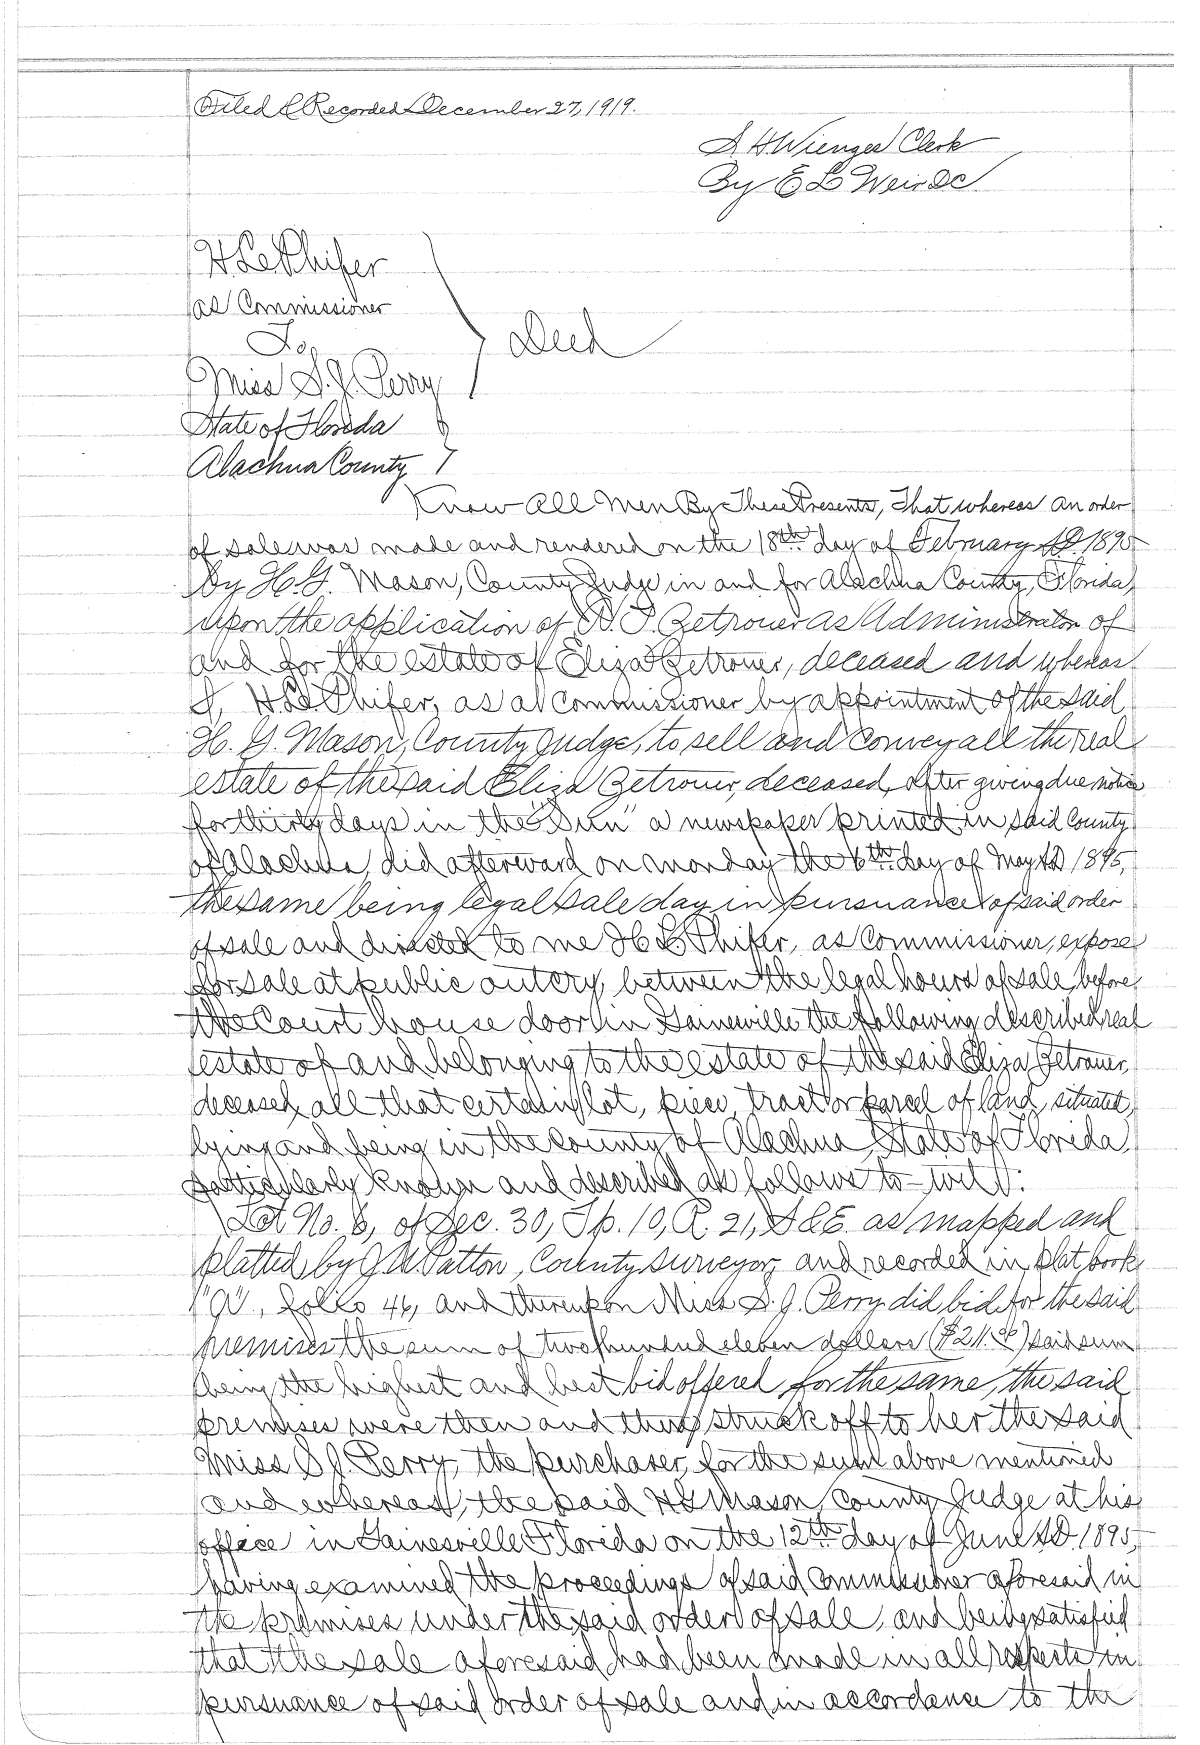 Filed & Recorded December 27, 1919.
S. H. Wienges Clerk
By E L Weir DC
H L Phifer
as Commissioner
To
Miss S. J. Perry
Deed
State of Florida
Alachua County
Know All Men By These Presents, That whereas an order
of sale was made and rendered on the 18th day of February A.D. 1895
by H. G. Mason, County Judge in and for Alachua County, Florida,
upon the application of Getrouer as Administrator of
and for the estate of Eliza Getrouer, deceased and whereas
I, H. L. Phifer, as a Commissioner by appointment of the said
H. G. Mason, County Judge, to sell and convey all the real
estate of the said Eliza Getrouer, deceased, after giving due notice
for thirty days in the "Sun" a newspaper printed in said County
of Alachua, did afterward on monday the 6th day of May A.D. 1895,
the same being legal sale day in pursuance of said order
of sale and directed to me H L Phifer, as Commissioner, expose
for sale at public outcry, between the legal hours of sale, before
the Court house door in Gainesville the following described real
estate of and belonging to the estate of the said Eliza Getrouer,
deceased, all that certain lot, piece, tract or parcel of land, situated,
lying and being in the County of Alachua, State of Florida,
particularly known and described as follows to-wit:
Lot No. 6, of Sec. 30, Tp. 10, R. 21, S & E. as mapped and
platted by J W Patton, County surveyor, and recorded in plat book
"A", folio 46, and thereupon Miss S. J. Perry did bid for the said
premises the sum of two hundred eleven dollars ($211.00) said sum
being the highest and best bid offered for the same, the said
premises were then and there struck off to her the said
Miss S J. Perry, the purchaser, for the sum above mentioned
and whereas, the said H G Mason, County Judge at his
office in Gainesville Florida on the 12th day of June A.D. 1895,
having examined the proceedings of said Commissioner aforesaid in
the premises under the said order of sale, and being satisfied
that the sale aforesaid had been made in all respects in
pursuance of said order of sale and in accordance to the